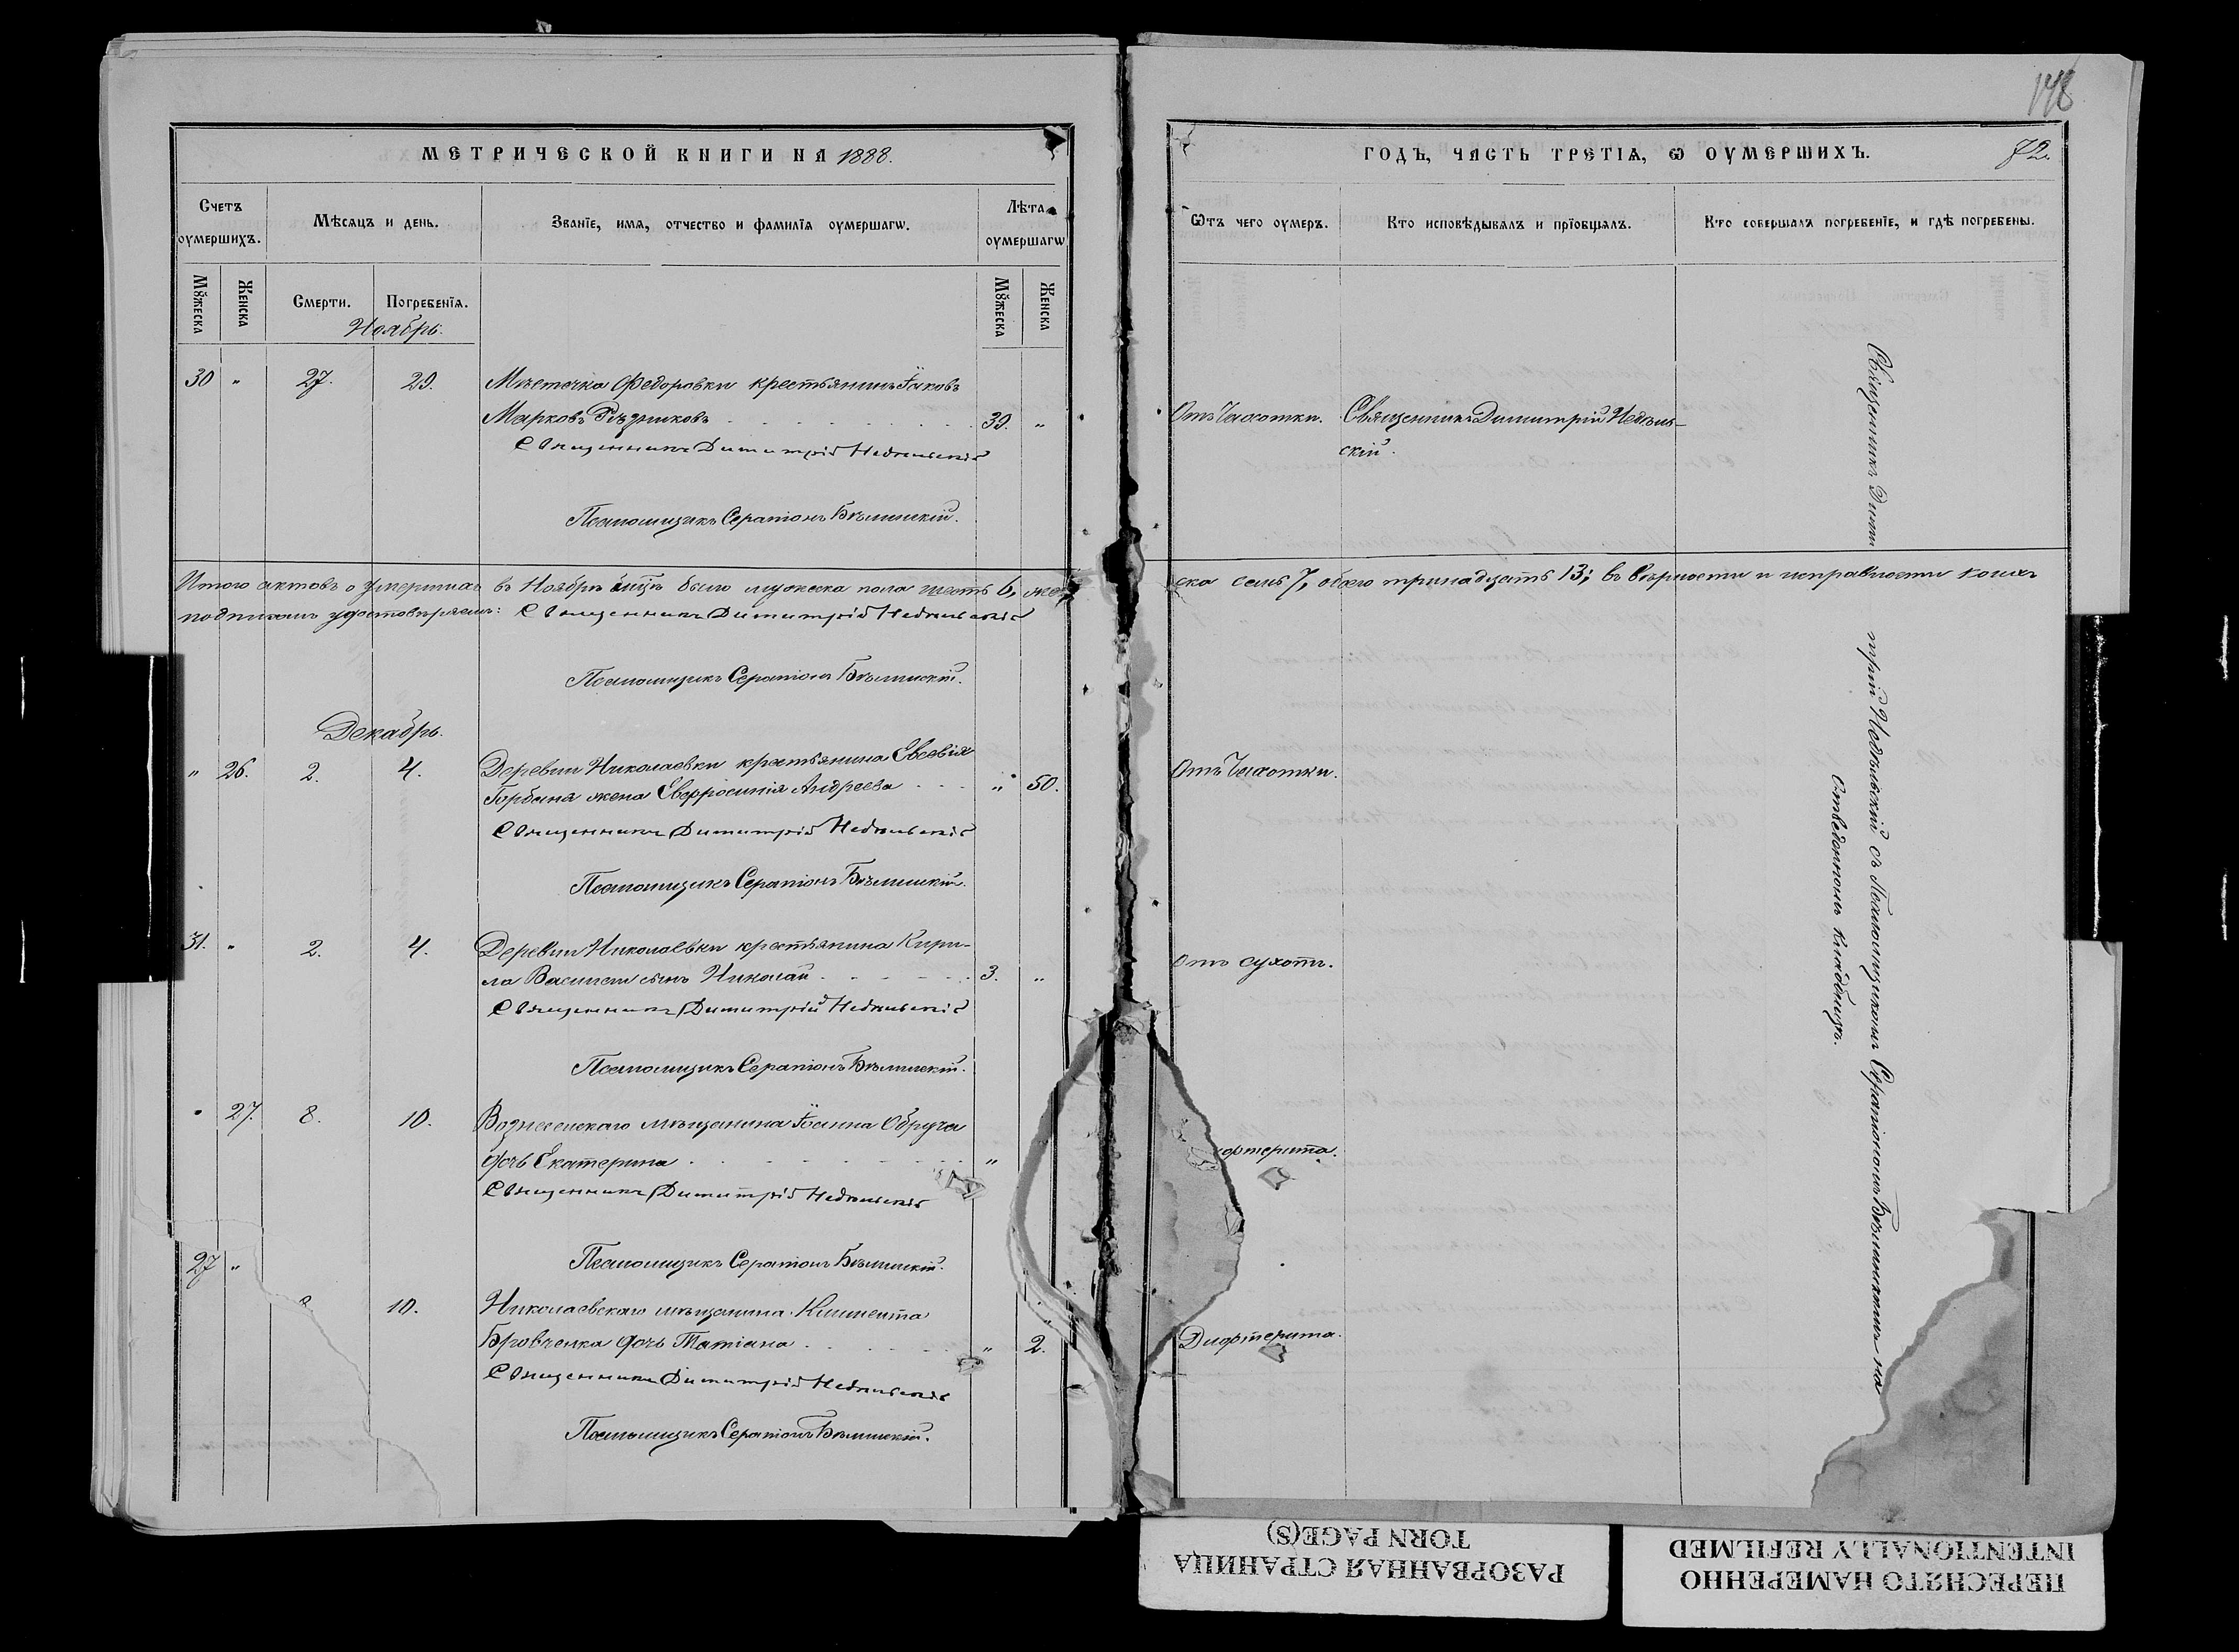 МЕТРИЧЕСКОЙ КНИГИ НА 1888.
Счетъ оумершихъ.
Мѣсяцъ и день.
Званїе, имя, отчество и фамилїя оумершагѡ.
Лѣта оумершагѡ
Мꙋжеска
Женска
Смерти.
Погребенїя.
Мꙋжеска
Женска
Ноябрь.
30 " 27. 29. Мѣстечка Федоровки крестьянинъ Іаковъ
Марковъ Рѣзниковъ 39. "
Священникъ Димитрій Недѣльскій
Псаломщикъ Серапіонъ Бѣлинскій.
Итого актовъ о умершихъ въ Ноябрѣ мцѣ было мужеска пола шесть 6, жен
подписомъ удостовѣряемъ: Священникъ Димитрій Недѣльскій
Псаломщикъ Серапіонъ Бѣлинскій.
Декабрь.
" 26. 2. 4. Деревни Николаевки крестьянина Евсевія
Горбаня жена Евфросинія Андреева " 50.
Священникъ Димитрій Недѣльскій
Псаломщикъ Серапіонъ Бѣлинскій.
31. " 2. 4. Деревни Николаевки крестьянина Кири-
ла сынъ Николай 3. "
Священникъ Димитрій Недѣльскій
Псаломщикъ Серапіонъ Бѣлинскій.
" 27. 8. 10. Вознесенскаго мѣщанина Іоанна Обруча
дочь Екатерина "
Священникъ Димитрій Недѣльскій
Псаломщикъ Серапіонъ Бѣлинскій.
27 "
10. Николаевскаго мѣщанина Климента
Бровченка дочь Татіана " 2.
Священникъ Димитрій Недѣльскій
Псаломщикъ Серапіонъ Бѣлинскій.
148
ГОДЪ, ЧАСТЬ ТРЕТІЯ, Ѡ ОУМЕРШИХЪ.
72.
Ѿтъ чего оумеръ.
Кто исповѣдывалъ и прїобщалъ.
Кто совершалъ погребенїе, и гдѣ погребены.
Отъ Чахотки. Священникъ Димитрій Недѣль-
скій.
ска семь 7, обоего тринадцать 13; въ вѣрности и исправности коихъ
Отъ Чахотки.
Отъ сухотъ.
фтерита.
Дифтерита.
Священникъ Дими
трій Недѣльскій съ Псаломщикомъ Серапіономъ Бѣлинскимъ на
отведенномъ кладбищѣ.
РАЗОРВАННАЯ СТРАНИЦА
TORN PAGE(S)
ПЕРЕСНЯТО НАМЕРЕННО
INTENTIONALLY REFILMED